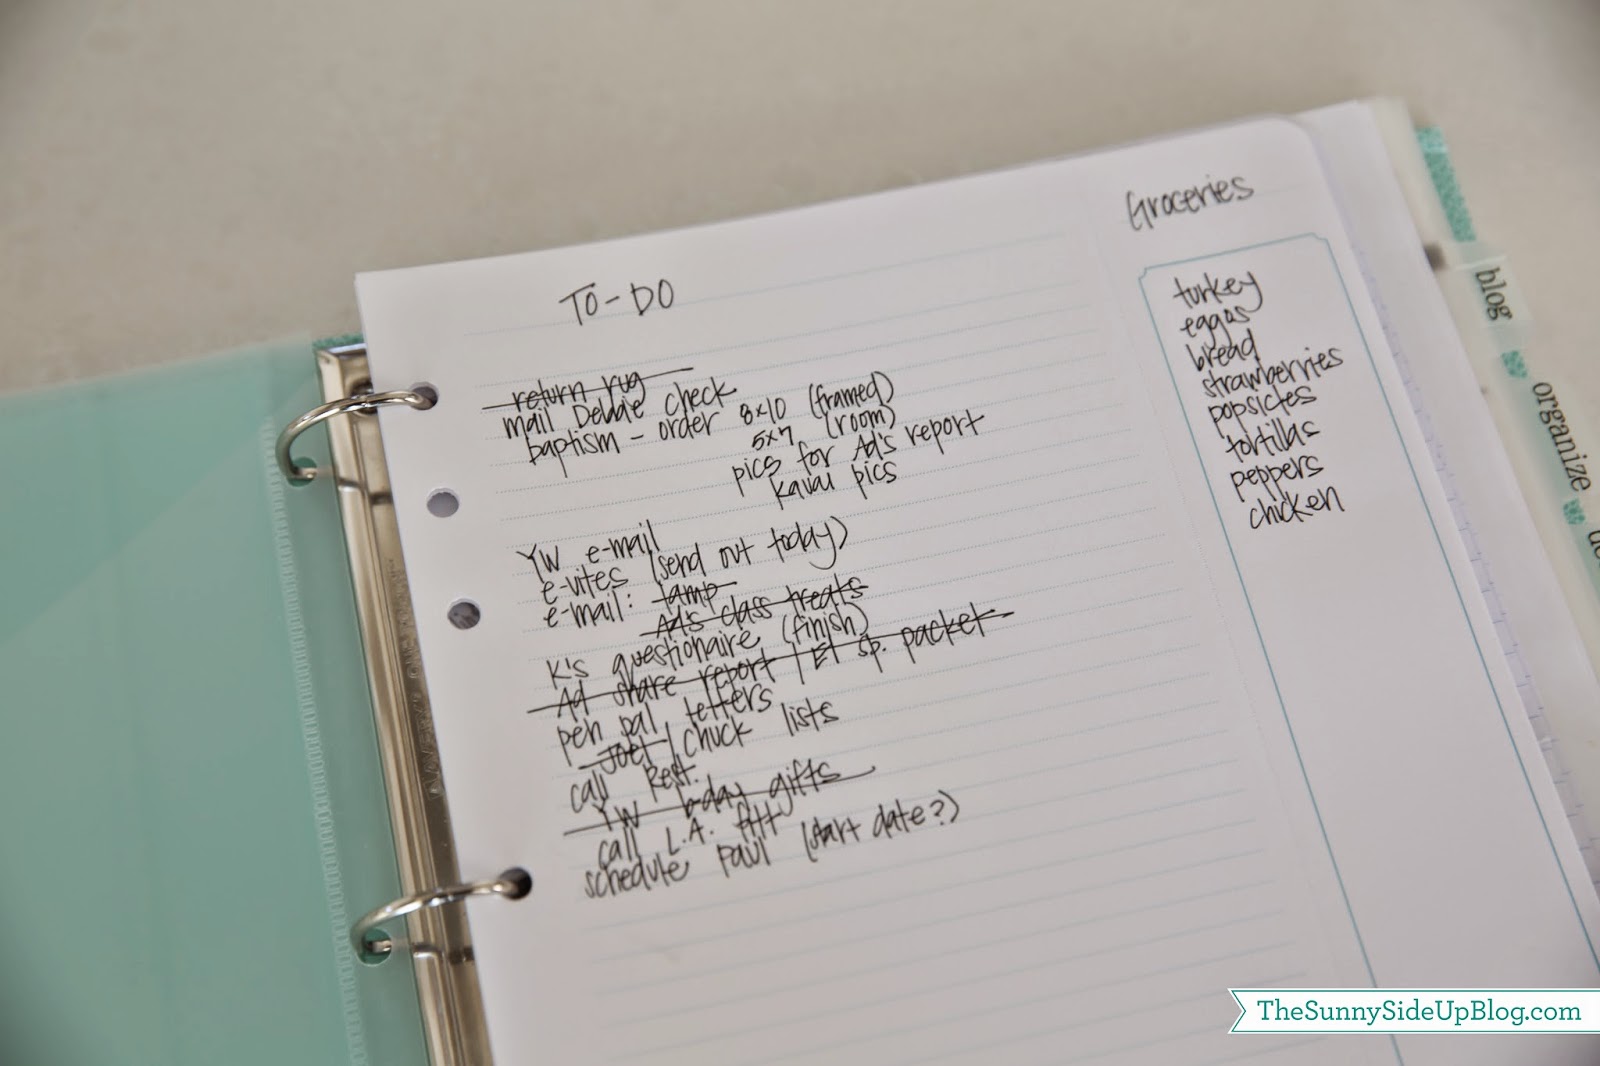 TO-DO
return rug
mail Debbie check
baptism - order 8x10 (framed)
5x7 (room)
pics for Ad's report
Kauai pics
YW e-mail
e-vites (send out today)
e-mail: tamp
Ad's class treats
K's questionaire (finish)
Ad share report / El sp. packet
pen pal letters
Joel / Chuck lists
call Rest.
YW b-day gifts
call L.A. fitt
schedule Paul (start date?)
Groceries
turkey
eggos
bread
strawberries
popsicles
tortillas
peppers
chicken
blog
organize
TheSunnySideUpBlog.com